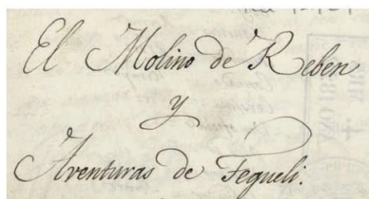 El Molino de Keben
y
Aventuras de Fequeli.